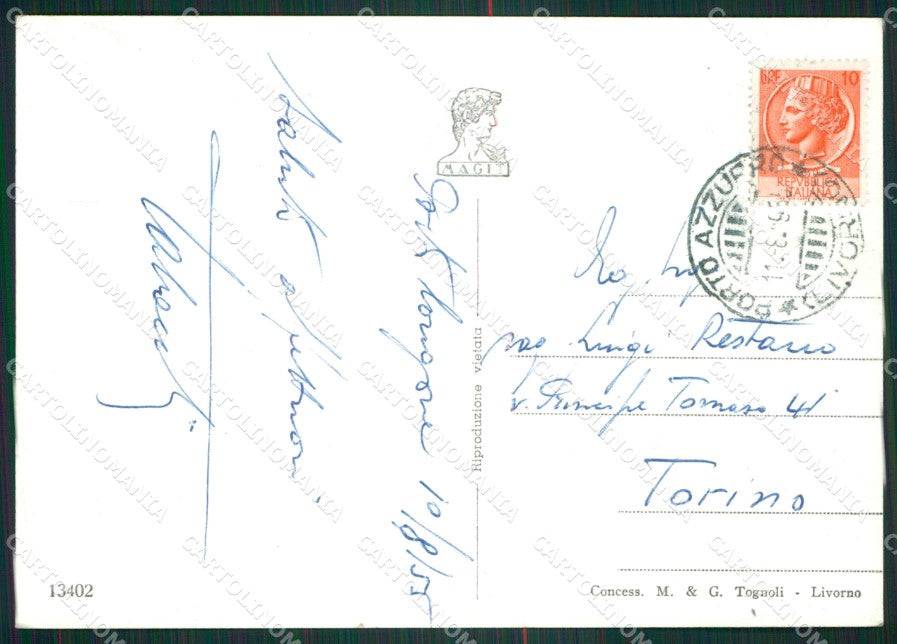 Saluti affettuosi
Porto Longone 10/8/55
MAGIT
LIRE 10
REPVBBLICA
ITALIANA
PORTO AZZURRO * (LIVORNO) *
11.8.55
Rag.
Luigi Restano
v. Principe Tomaso 41
Torino
Riproduzione vietata
13402
Concess. M. & G. Tognoli - Livorno
CARTOLINOMANIA